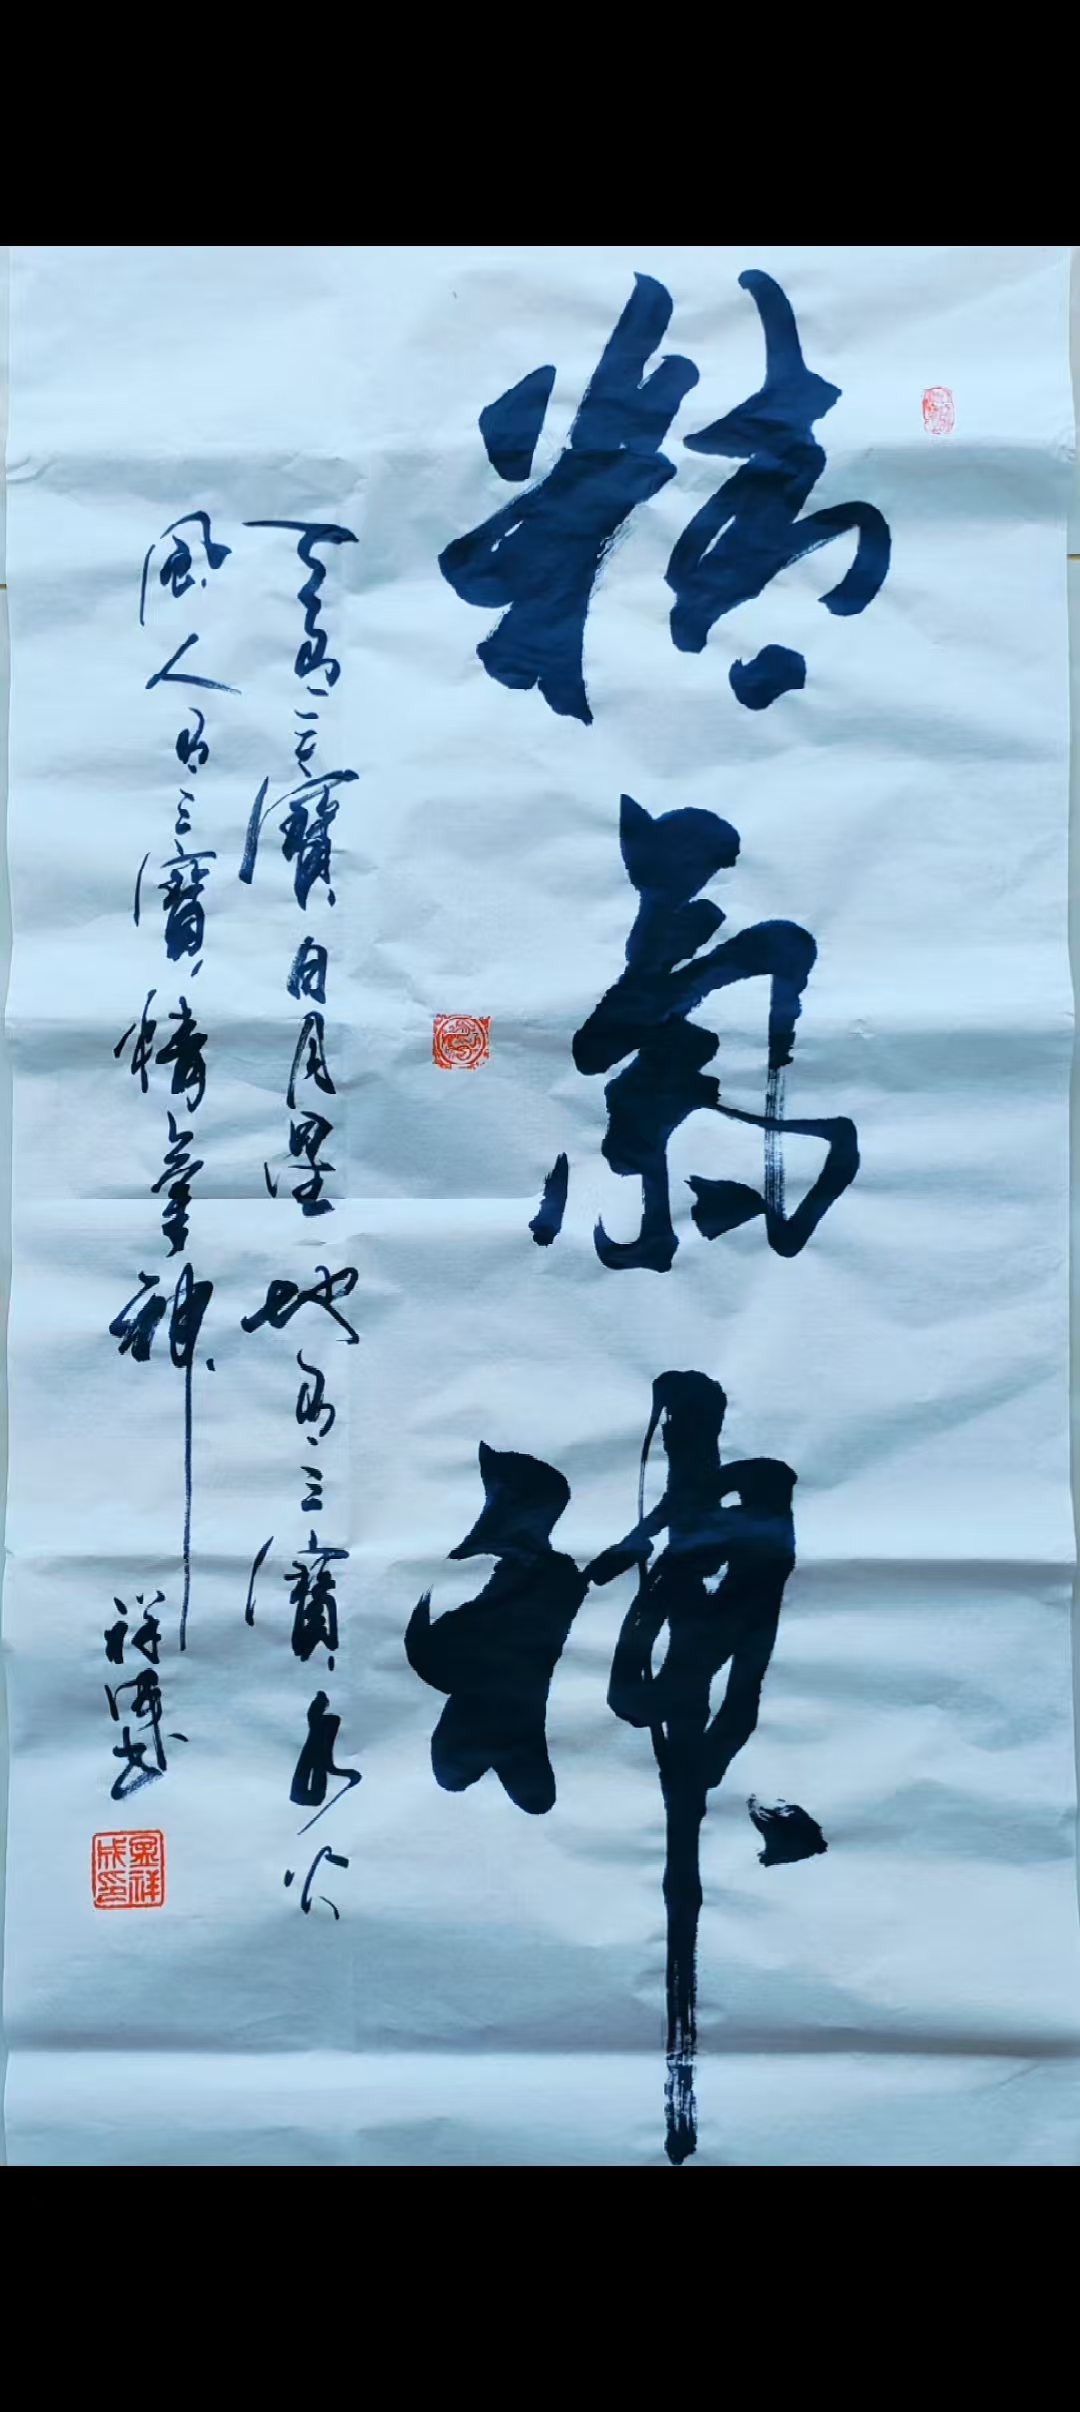 精氣神
天有三寶日月星地有三寶水火
風人有三寶精氣神
祥成书
祥
成印